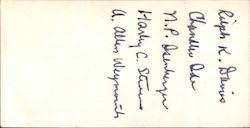 Ralph K. Davis
Chandler Ide
N. P. Isenberger
Harley C. Stevens
A. Allen Weymouth